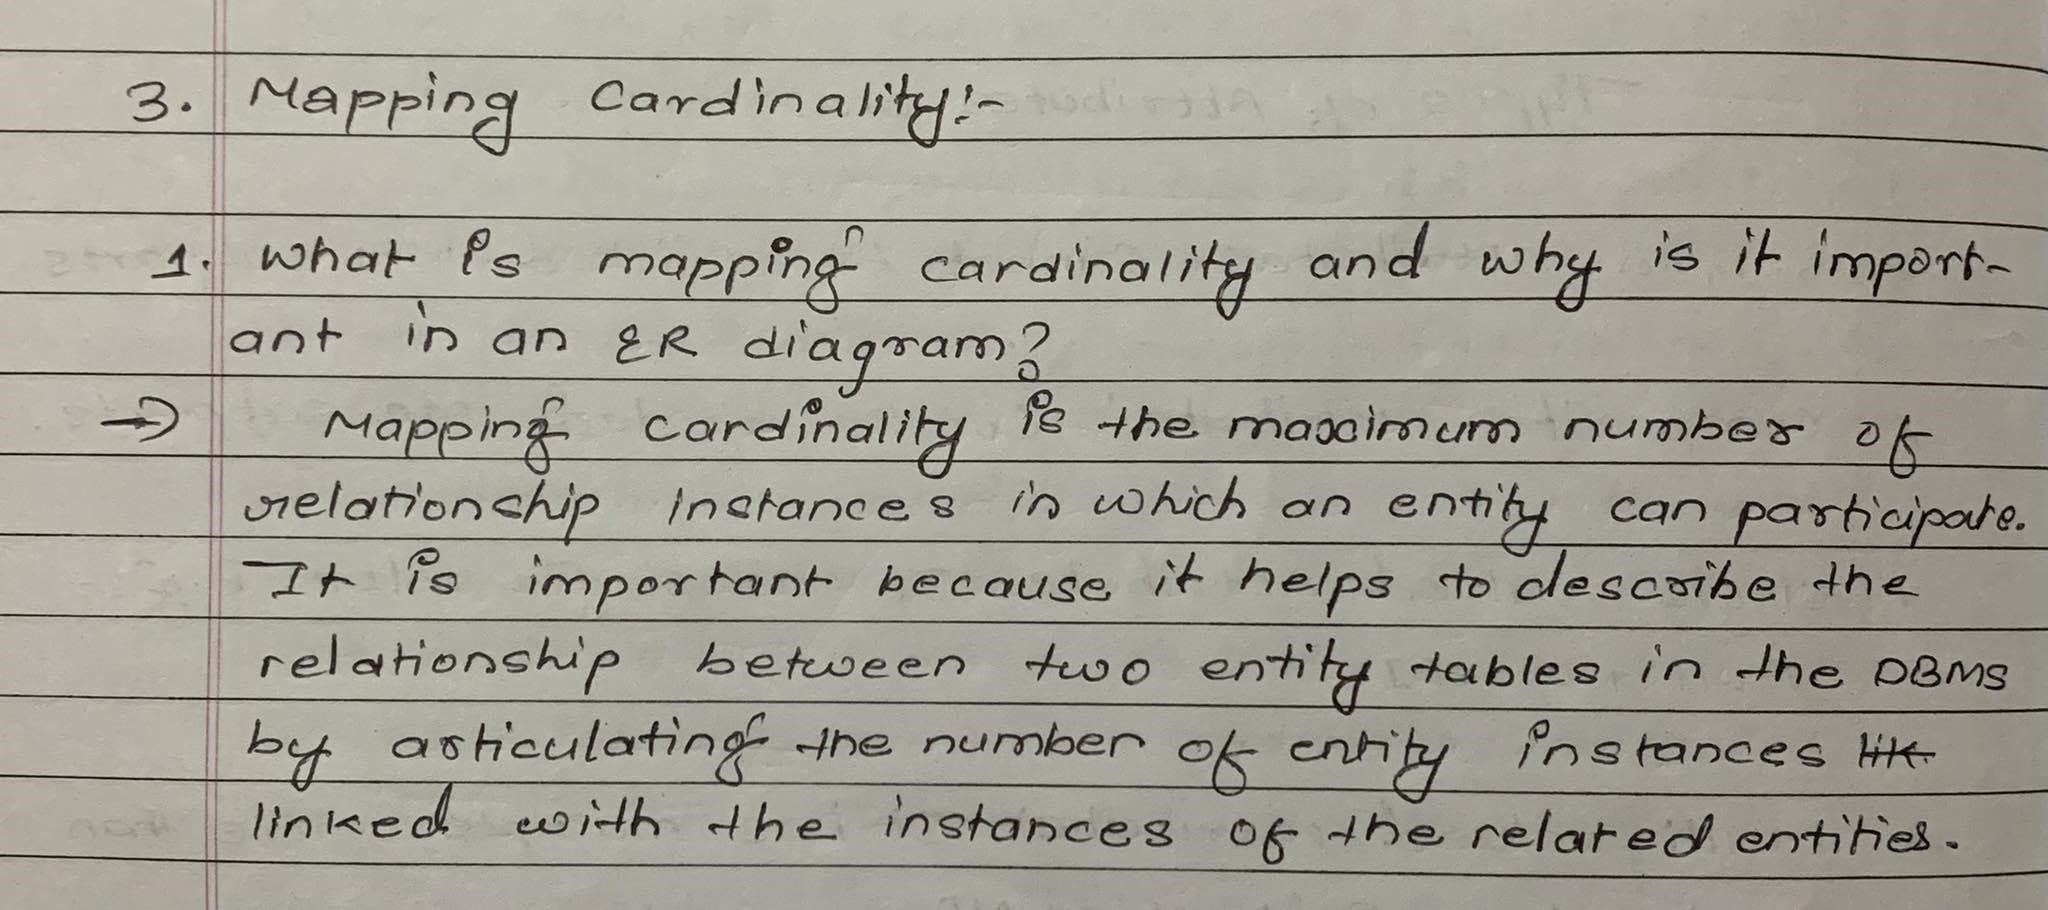 3. Mapping Cardinality:-
1. what is mapping cardinality and why is it import-
ant in an ER diagram?
→ Mapping cardinality is the maximum number of
relationship instances in which an entity can participate.
It is important because it helps to describe the
relationship between two entity tables in the DBMS
by articulating the number of entity instances
linked with the instances of the related entities.